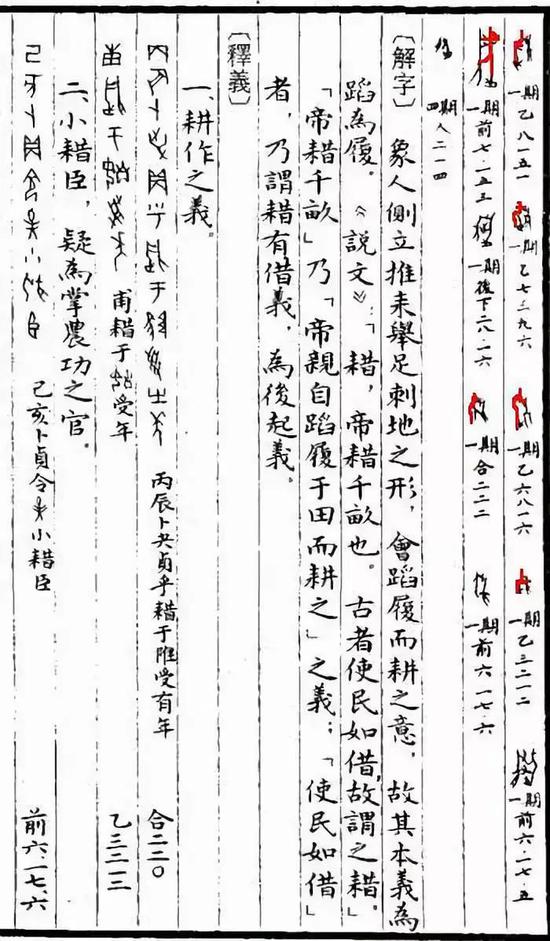 一期乙八·一五一 一期乙七三九六 一期乙六八一六 一期乙三二一二 一期前六·一七·五
一期前七·一五·三 一期後下二八·一六 一期合二二二 一期前六·一七·六
四期人二一四
〔解字〕象人側立推耒舉足刺地之形，會蹈履而耕之意，故其本義為
蹈為履。《說文》：「耤，帝耤千畝也。古者使民如借，故謂之耤。」
「帝耤千畝」乃「帝親自蹈履于田而耕之」之義；「使民如借」
者，乃謂耤有借義，為後起義。
〔釋義〕
一、耕作之義。
丙辰卜貞乎耤于陮受有年 合二二〇
甫耤于受年 乙三二一二
二、小耤臣，疑為掌農功之官。
己亥卜貞令小耤臣 前六·一七·六